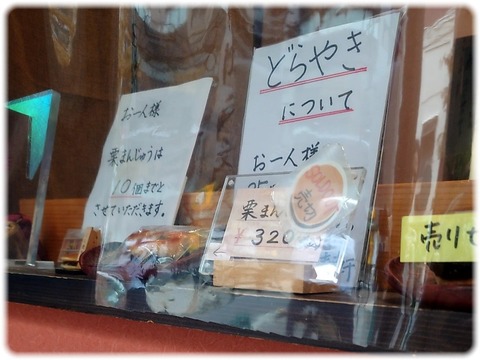 お一人様
栗まんじゅうは
10個までと
させていただきます。
どらやき
について
お一人様
栗まん
¥320
売切
売り